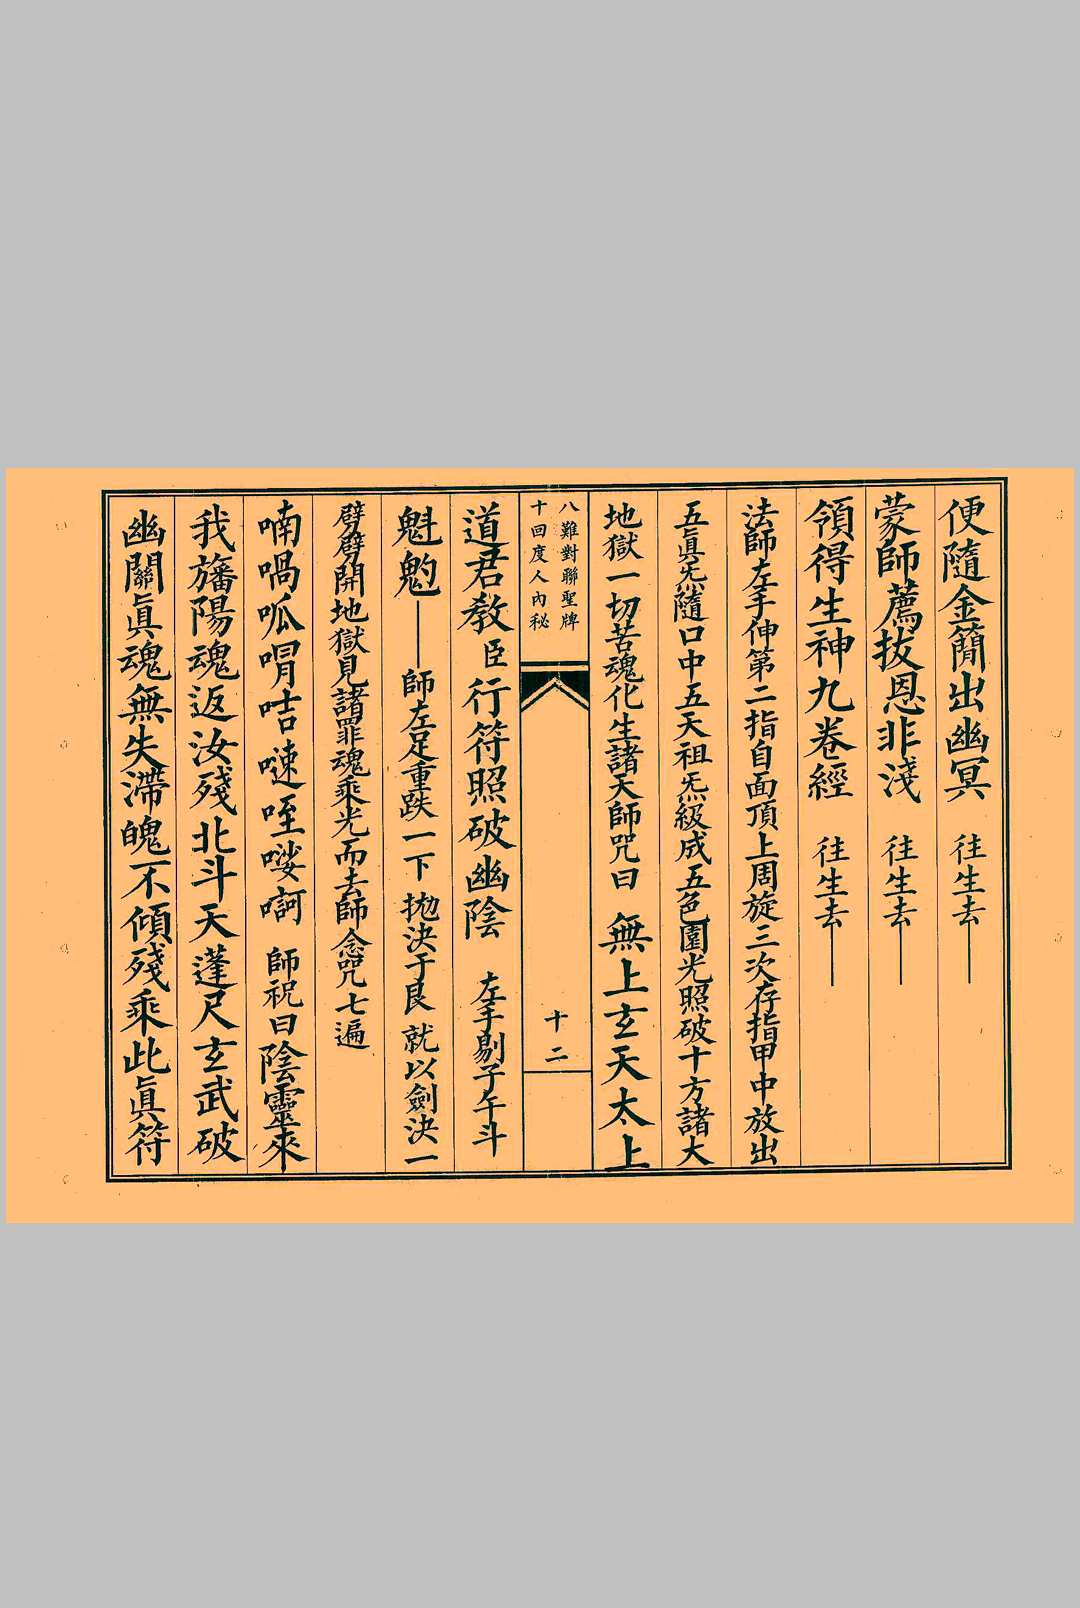 便隨金簡出幽冥　往生去——
蒙師薦拔恩非淺　往生去——
領得生神九卷經　往生去——
法師左手伸第二指自面頂上周旋三次存指甲中放出
五眞炁隨口中五天祖炁級成五色圓光照破十方諸大
地獄一切苦魂化生諸天師咒曰　無上玄天太上
八難對聯聖牌
十回度人內秘
十二
道君敎臣行符照破幽陰　左手剔子午斗
魁魁——師左足重跌一下拋決于艮就以劍決一
劈劈開地獄見諸罪魂乘光而去師念咒七遍
喃喎呱喟咭㗭咥㗭啊　師祝曰陰靈來
我旛陽魂返汝殘北斗天蓬尺玄武破
幽關眞魂無失滯魄不傾殘乘此眞符